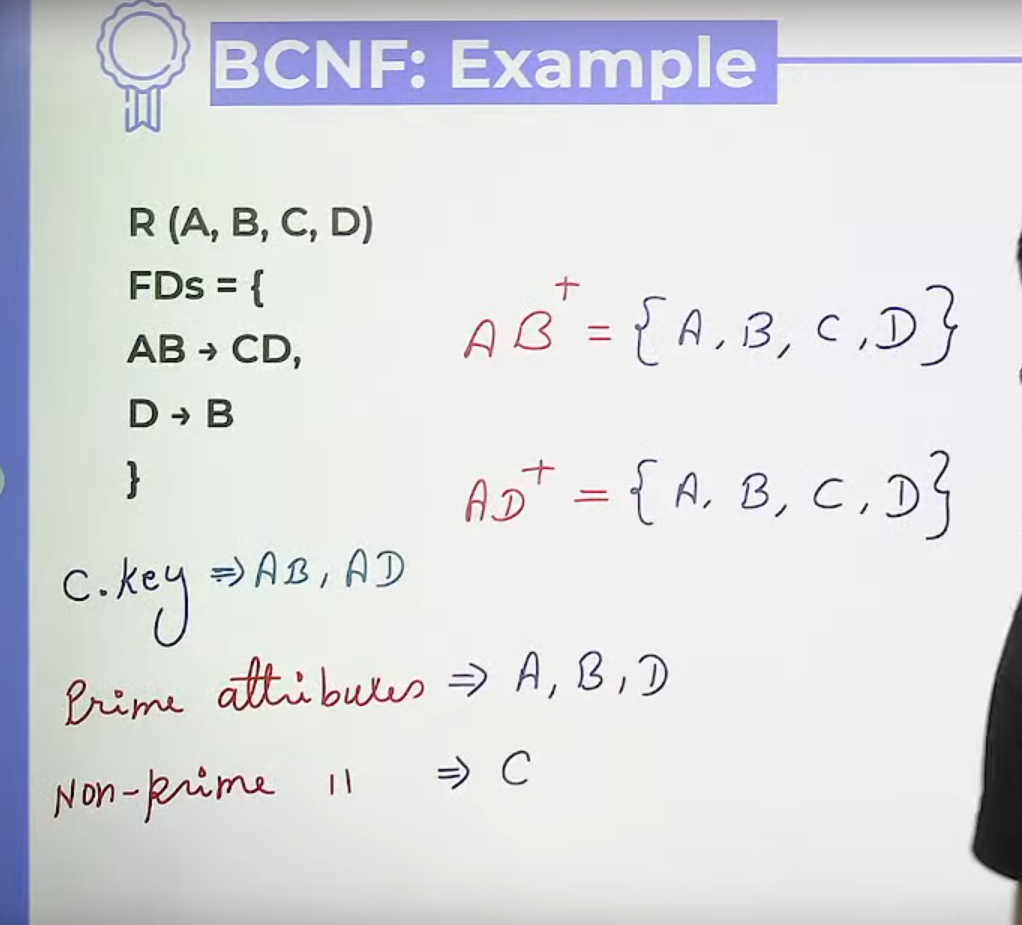 BCNF: Example
R (A, B, C, D)
FDs = {
AB → CD,
D → B
}
AB⁺ = {A, B, C, D}
AD⁺ = {A, B, C, D}
C.key ⇒ AB, AD
Prime attributes ⇒ A, B, D
Non-prime 11 ⇒ C